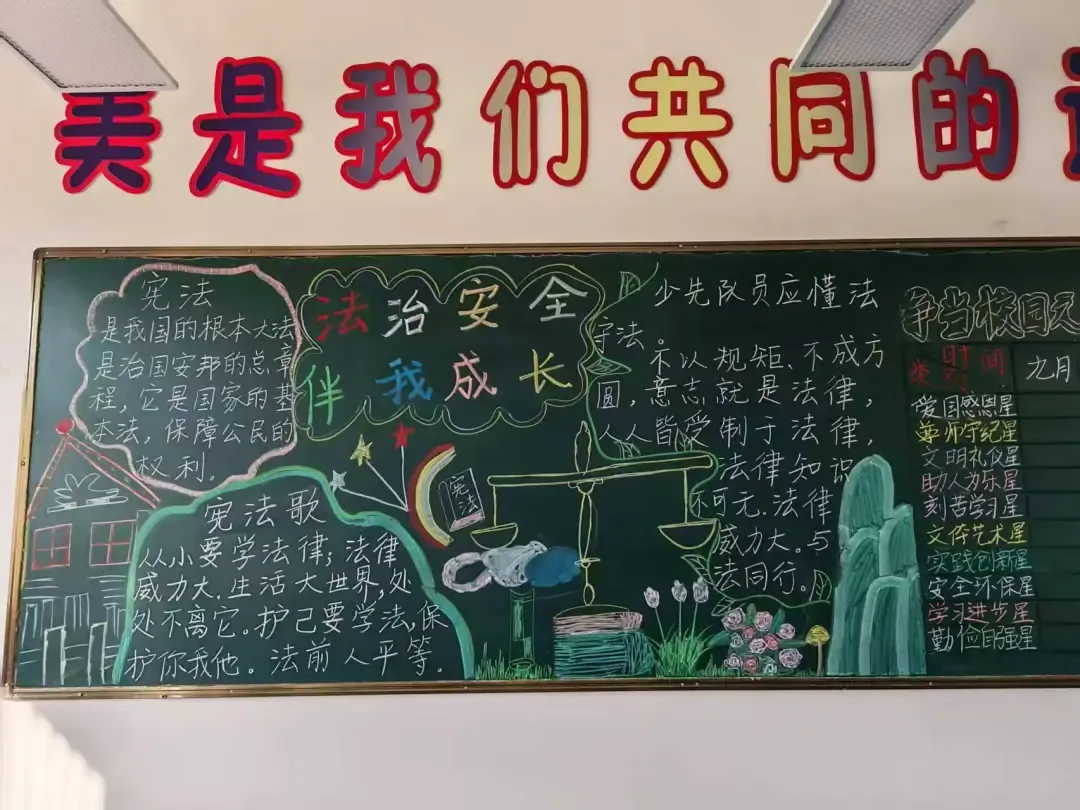 美是我们共同的
宪法
是我国的根本大法
是治国安邦的总章
程，它是国家的基
本法，保障公民的
权利。
法治安全
伴我成长
宪法
宪法歌
从小要学法律；法律
威力大.生活大世界,处
处不离它。护己要学法,保
护你我他。法前人平等.
少先队员应懂法
守法。
不以规矩、不成方
圆，意志就是法律，
人人皆受制于法律，
法律知识
不可无.法律
威力大。与
法同行。
争当校园元
类别
时间
九月
爱国感恩星
尊师守纪星
文明礼仪星
助人为乐星
刻苦学习星
文体艺术星
实践创新星
安全环保星
学习进步星
勤俭自强星